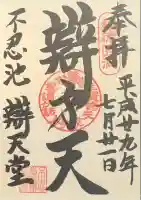 奉拝
平成廿九年
七月廿一日
辯才天
不忍池
辯天堂